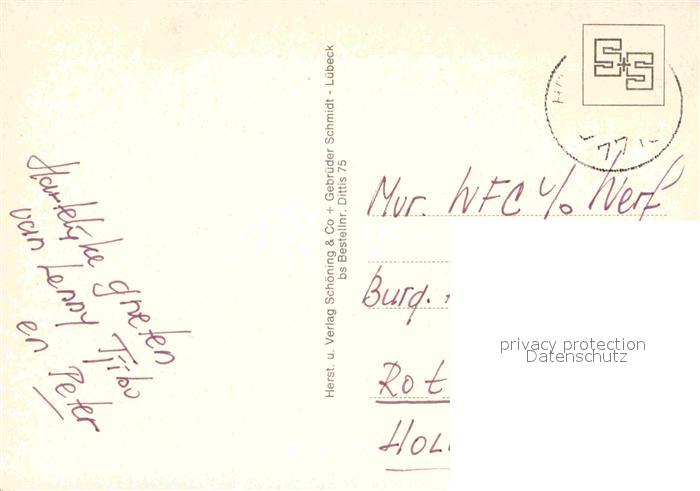 Hartelijke groeten
van Lenny Tjibo
en Peter
Herst. u. Verlag Schöning & Co + Gebrüder Schmidt - Lübeck
bs Bestellnr. Dittis 75
S+S
77
Mvr. WFC v/o Werf
Burg.
Rot
HOL
privacy protection
Datenschutz